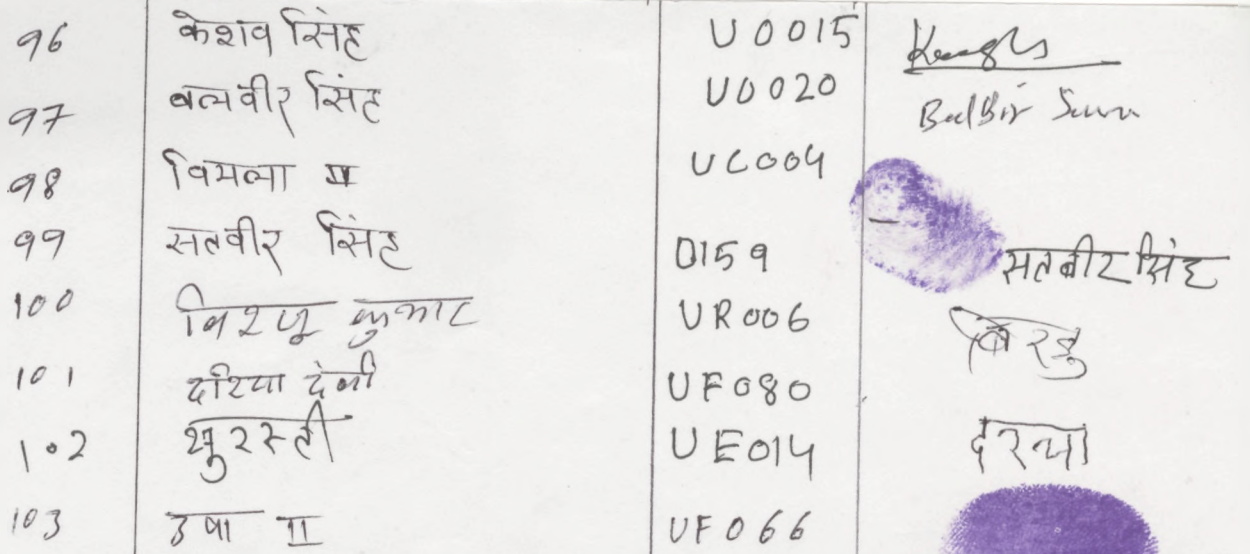 96 केशव सिंह U0015
97 बलवीर सिंह U0020 BalBir
98 विमला II UC004
99 सतवीर सिंह D159 सतबीर सिंह
100 कुमार UR006
101 दरिया देवी UF080
102 सुरस्ती UE014 दरया
103 उषा II UF066